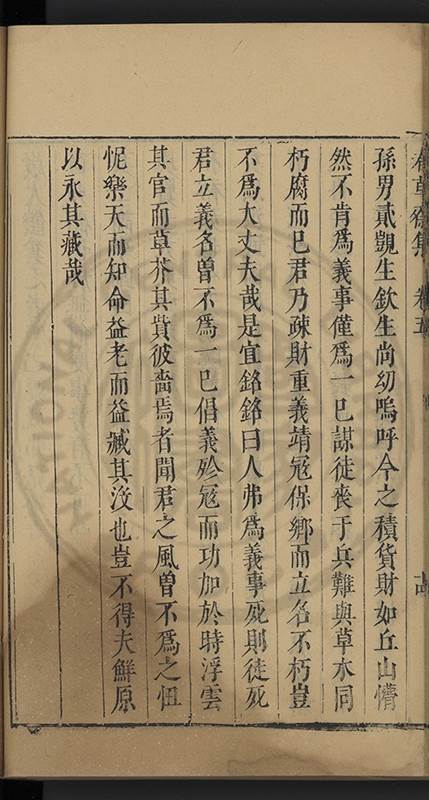 春草齋集 卷五
孫男貳覬生欽生尚幼嗚呼今之積貨財如丘山懵
然不肯爲義事僅爲一己謀徒喪于兵難與草木同
朽腐而已君乃疎財重義靖冦保鄉而立名不朽豈
不爲大丈夫哉是宜銘銘曰人弗爲義事死則徒死
君立義名曽不爲一已倡義殄冦而功加於時浮雲
其官而草芥其貲彼嗇焉者聞君之風曽不爲之忸
怩樂天而知命益老而益臧其沒也豈不得夫鮮原
以永其藏哉